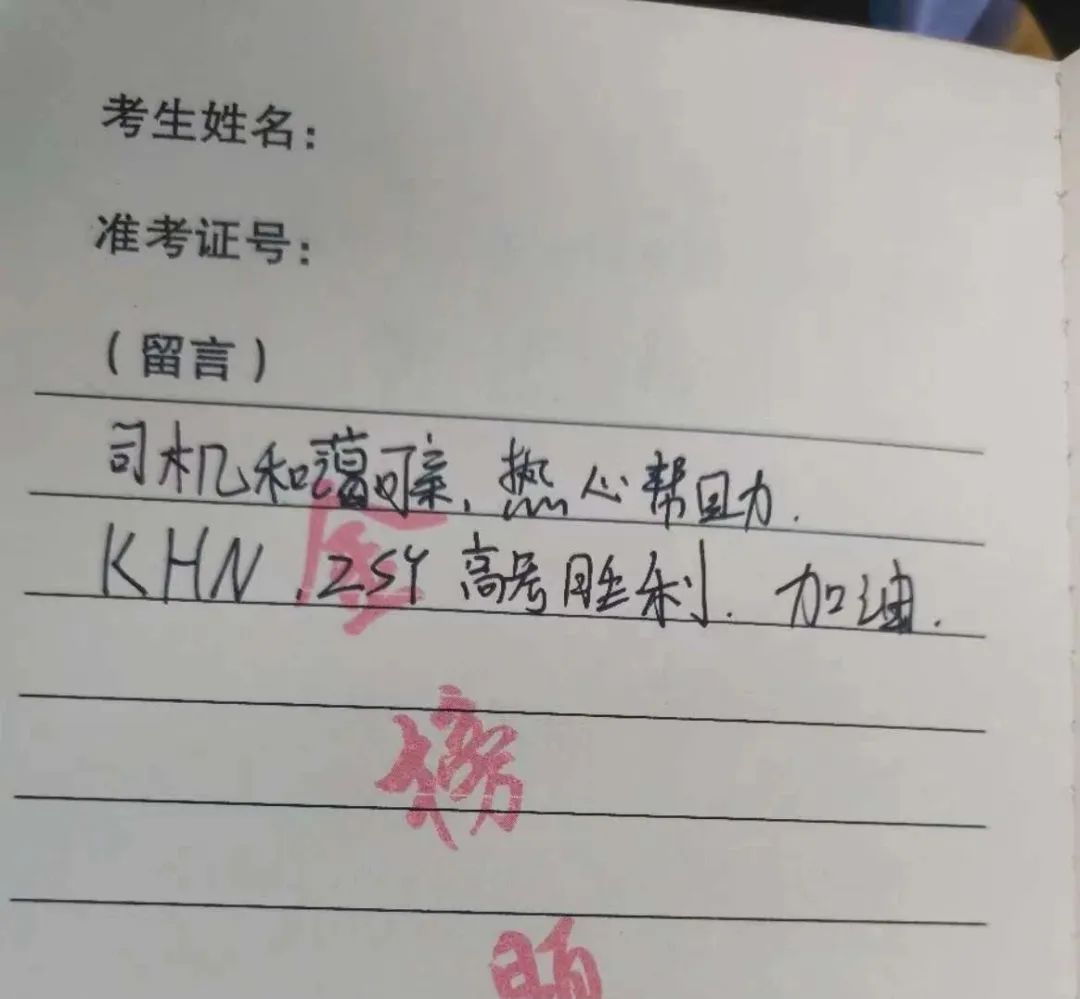 考生姓名:
准考证号:
(留言)
司机和蔼可亲,热心帮助.
KHN,ZSY高考胜利.加油.
金
榜
题